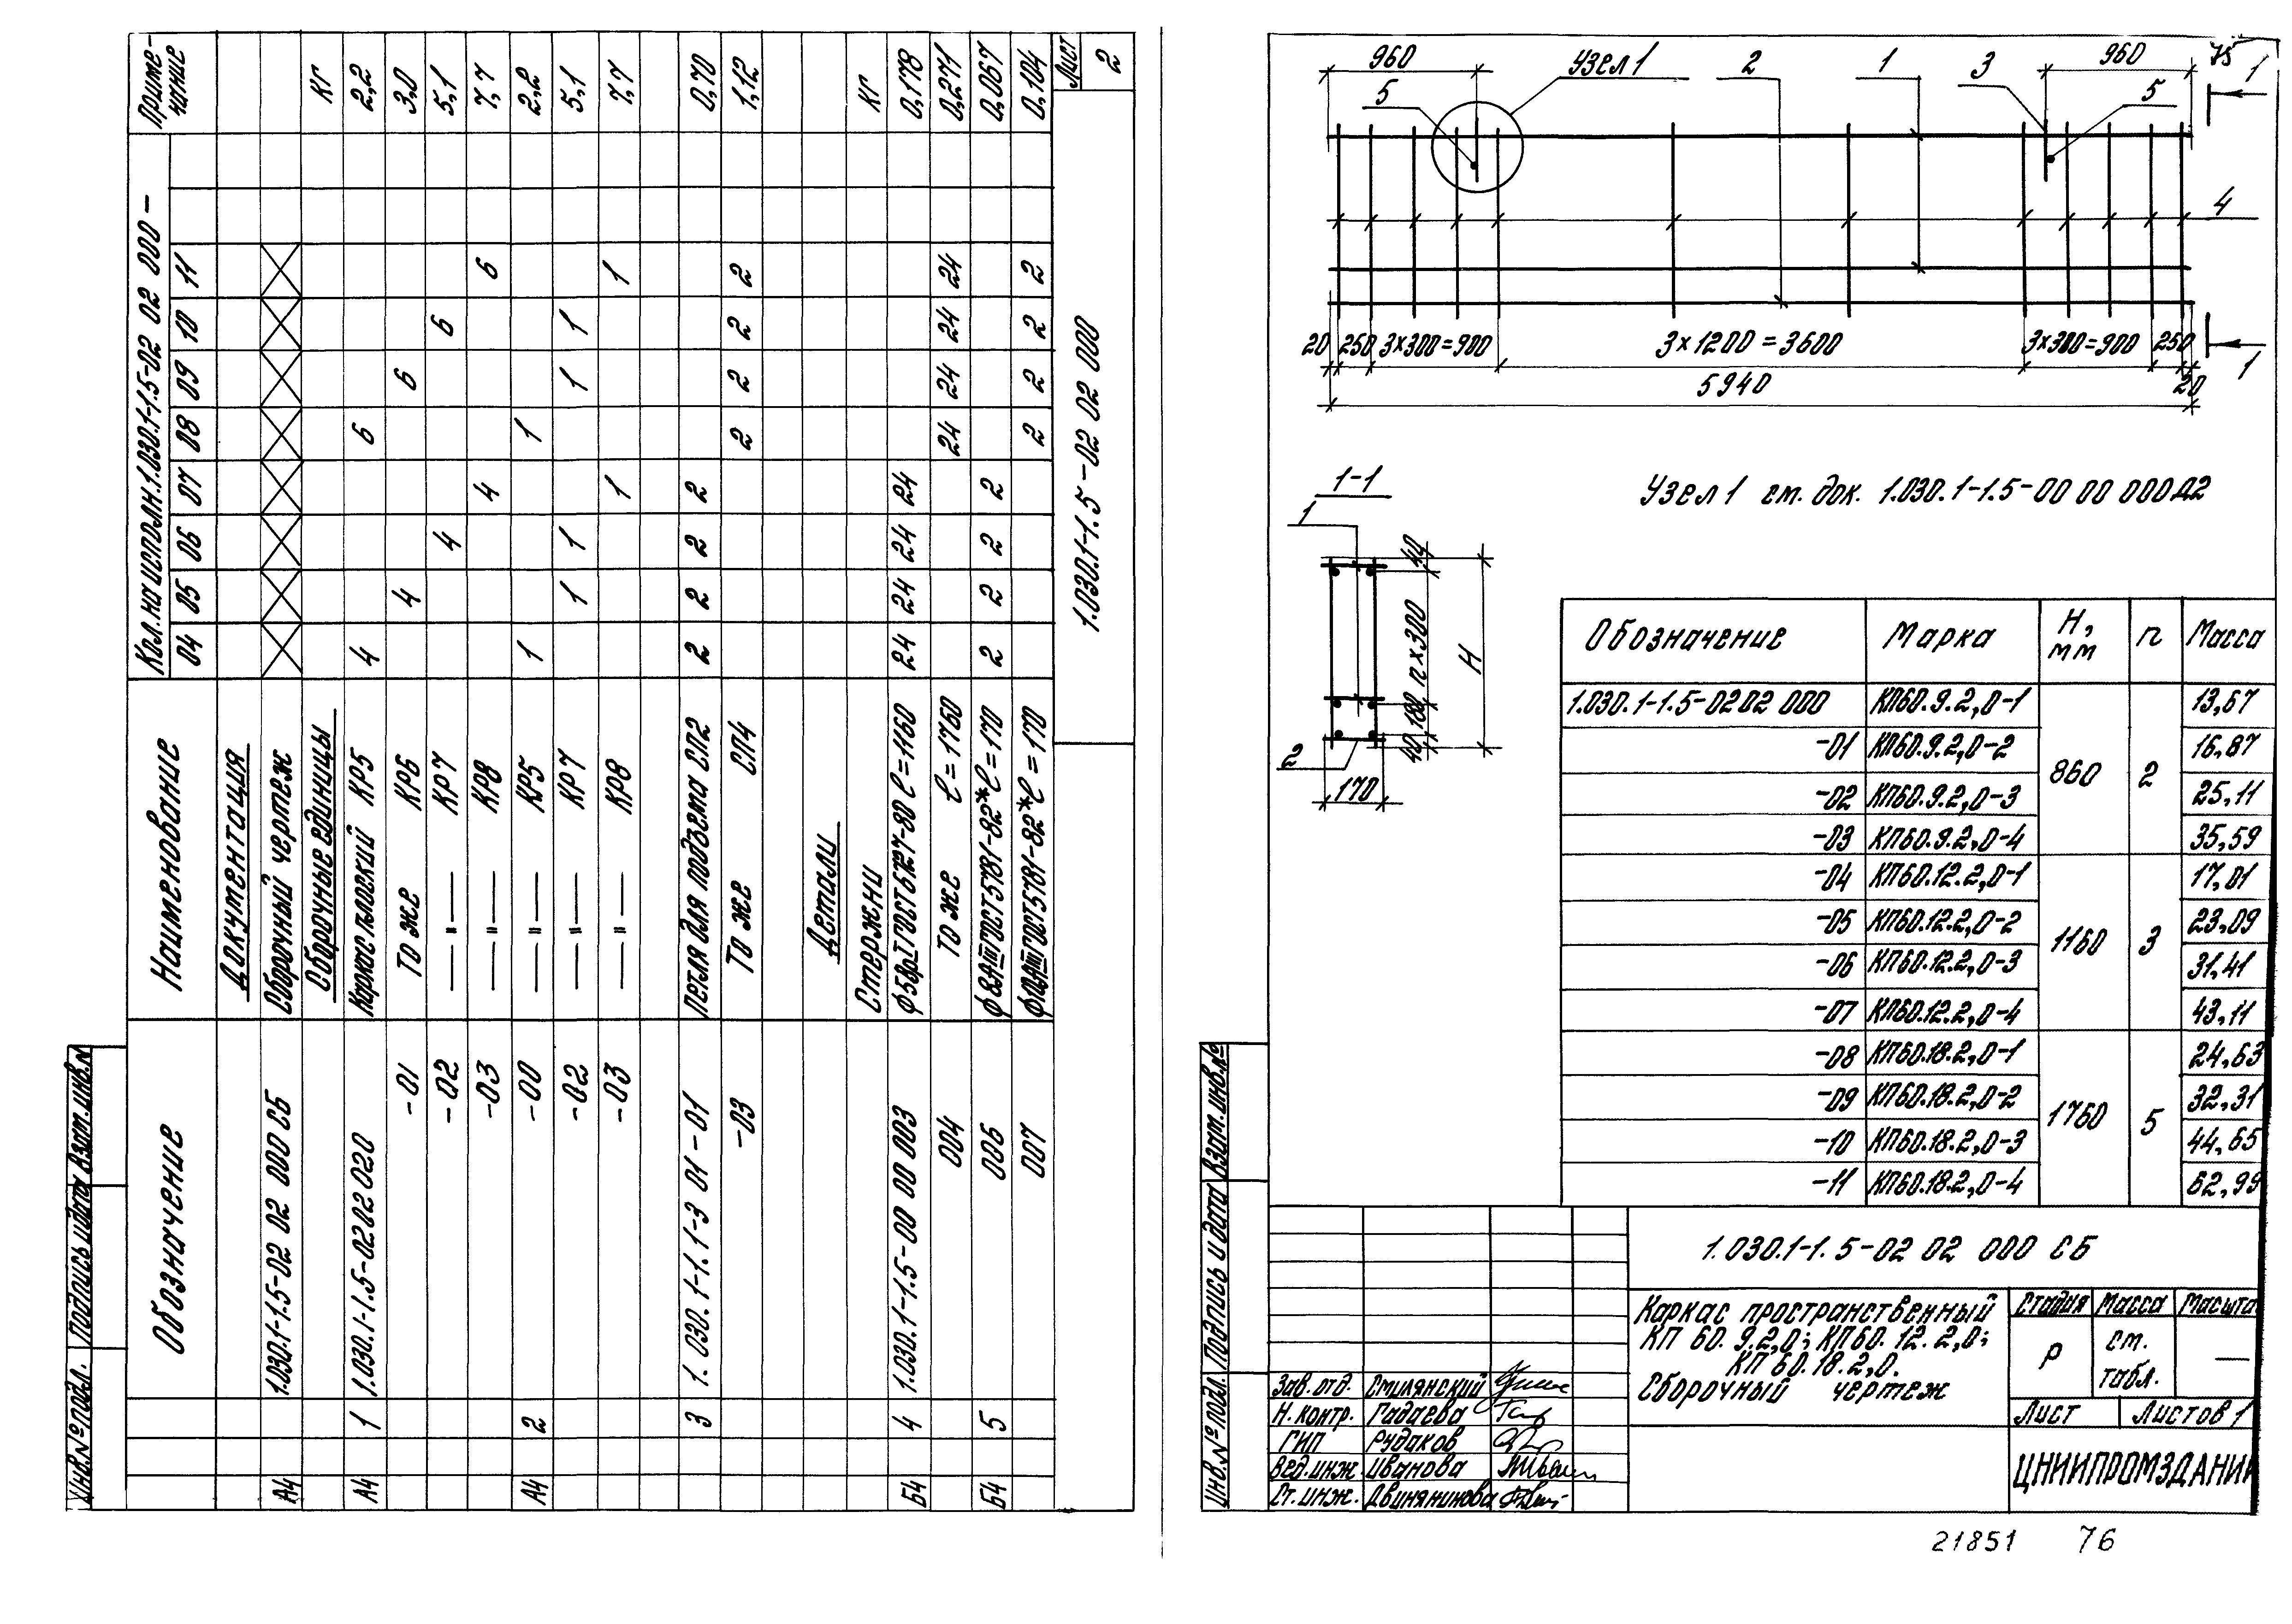 Обозначение
Наименование
Кол. на исполн. 1.030.1-1.5-02 02 000 —
Приме-
чание
04 05 06 07 08 09 10 11
Документация
А4 1.030.1-1.5-02 02 000 СБ Сборочный чертеж
Сборочные единицы кг
А4 1 1.030.1-1.5-0202 020 Каркас плоский КР5 4 6 2,2
-01 То же КР6 4 6 3,0
-02 — " — КР7 4 6 5,1
-03 — " — КР8 4 6 7,7
А4 2 -00 — " — КР5 1 1 2,2
-02 — " — КР7 1 1 1 1 5,1
-03 — " — КР8 1 1 7,7
3 1.030.1-1.1-3 01-01 Петля для подъема СП2 2 2 2 2 0,70
-03 То же СП4 2 2 2 2 1,12
Детали
Стержни кг
Б4 4 1.030.1-1.5-00 00 003 ф5ВрI ГОСТ6727-80 ℓ=1160 24 24 24 24 0,178
004 То же ℓ=1760 24 24 24 24 0,271
Б4 5 006 ф8АIII ГОСТ5781-82* ℓ=170 2 2 2 2 0,067
007 ф10АIII ГОСТ5781-82* ℓ=170 2 2 2 2 0,104
1.030.1-1.5-02 02 000
Лист
2
Инв.№ подл. Подпись и дата Взам.инв.№
75
960 Узел 1 2 1 3 960 1
5 5
4
20 250 3×300=900 3×1200=3600 3×300=900 250
1
5940
20
1-1
Узел 1 см. док. 1.030.1-1.5-00 00 000Д2
1
40
n×300
H
180
40
2
170
Обозначение Марка H, мм n Масса
1.030.1-1.5-0202 000 КП60.9.2,0-1 13,67
-01 КП60.9.2,0-2 16,87
860 2
-02 КП60.9.2,0-3 25,11
-03 КП60.9.2,0-4 35,59
-04 КП60.12.2,0-1 17,01
-05 КП60.12.2,0-2 23,09
1160 3
-06 КП60.12.2,0-3 31,41
-07 КП60.12.2,0-4 43,11
-08 КП60.18.2,0-1 24,63
-09 КП60.18.2,0-2 32,31
1760 5
-10 КП60.18.2,0-3 44,65
-11 КП60.18.2,0-4 62,99
1.030.1-1.5-02 02 000 СБ
Каркас пространственный
КП 60.9.2,0; КП60.12.2,0;
КП 60.18.2,0.
Сборочный чертеж
Стадия Масса Масшта
Р см. табл. —
Лист Листов 1
ЦНИИПРОМЗДАНИЙ
Зав. отд. Смилянский
Н. контр. Гадаева
ГИП Рудаков
Вед. инж. Иванова
Ст. инж. Двинянинова
Инв.№ подл. Подпись и дата Взам.инв.№
21851 76